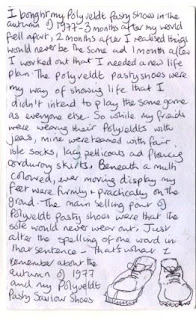 I bought my Polyveldt Pasty Shoes in the
autumn of 1977 - 3 months after my world
fell apart, 2 months after I realised things
would never be the same and 1 month after
I worked out that I needed a new life
plan. The polyveldt pasty shoes were
my way of showing life that I
didn't intend to play the same game
as everyone else. So while my friends
were wearing their Polyveldts with
jeans, mine were teamed with fair
isle socks, lacy petticoats and flouncing
corduroy skirts. Beneath a multi
coloured, ever moving display my
feet were firmly & practically on the
ground. The main selling point of
Polyveldt pasty shoes were that the
sole would never wear out. Just
alter the spelling of one word in
that sentence - that's what I
remember about the
autumn of 1977
and my Polyveldt
Pasty Shoes